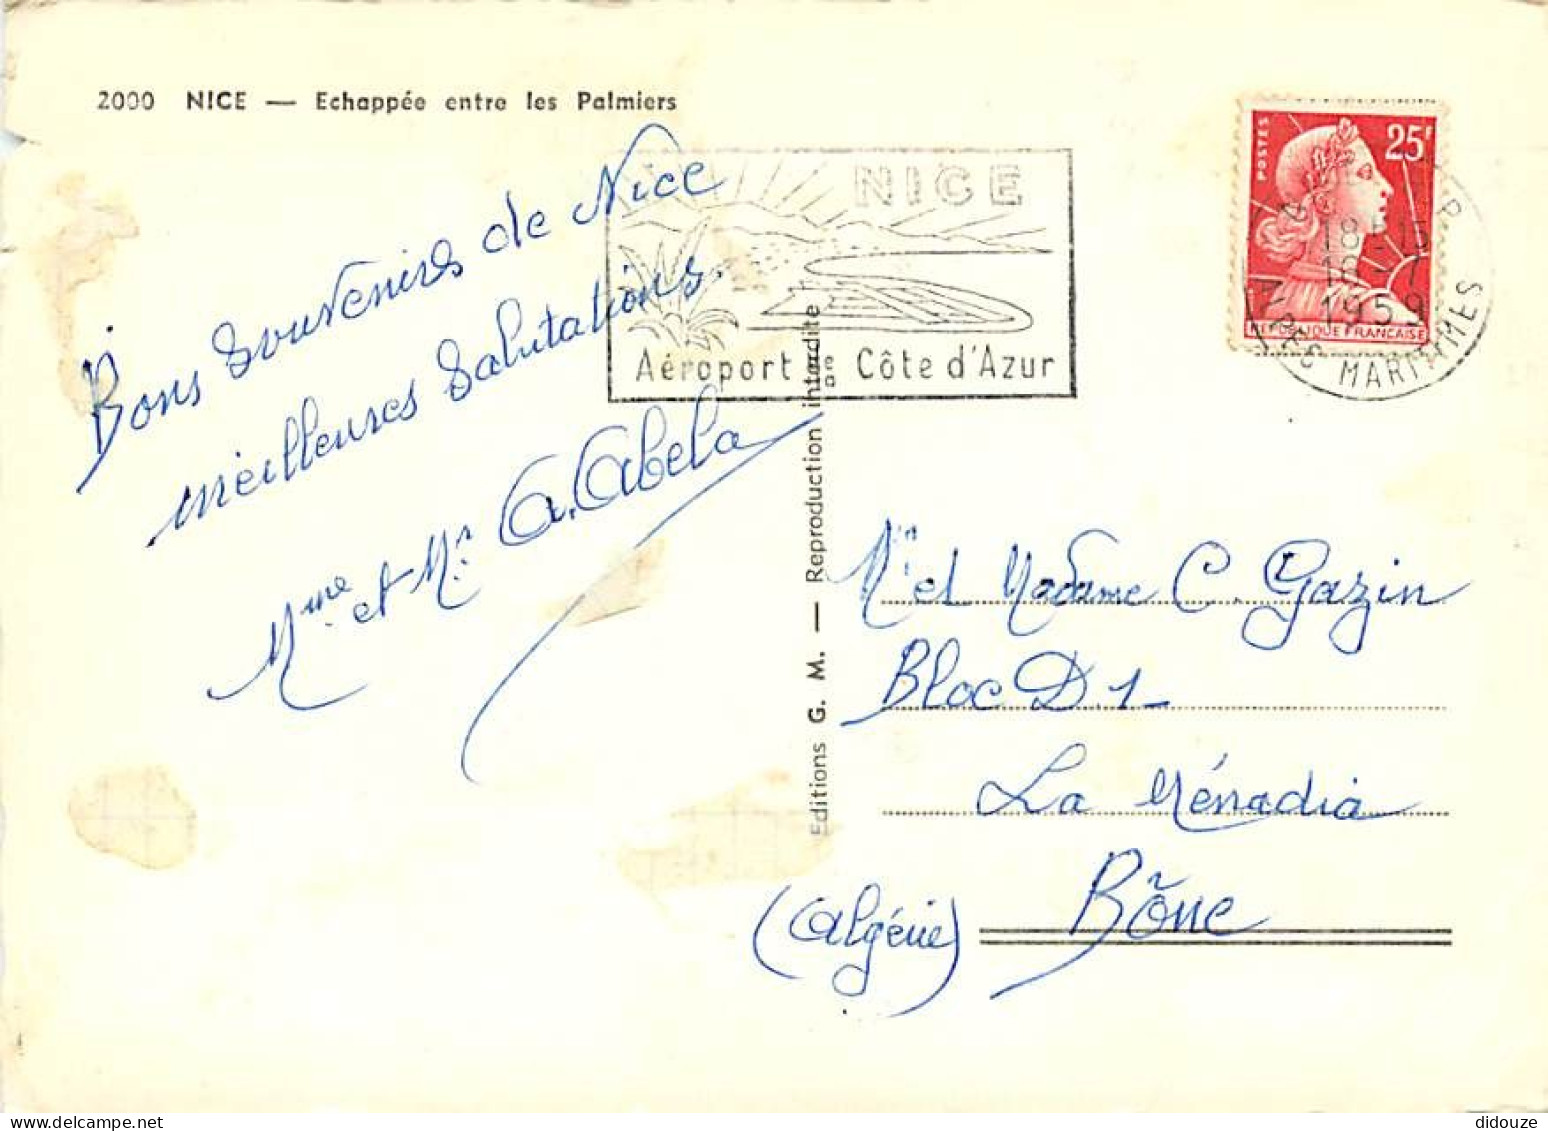 2000 NICE — Echappée entre les Palmiers
Bons souvenirs de Nice
meilleures salutations.
Mme et Mr A. Abela
NICE
Aéroport DE Côte d'Azur
POSTES
25F
REPUBLIQUE FRANÇAISE
18-15
16-7
1959
MARITIMES
Editions G. M. — Reproduction interdite
Mr et Madame C. Gazin
Bloc D.1
La Ménadia
Bône
(Algérie)
didouze